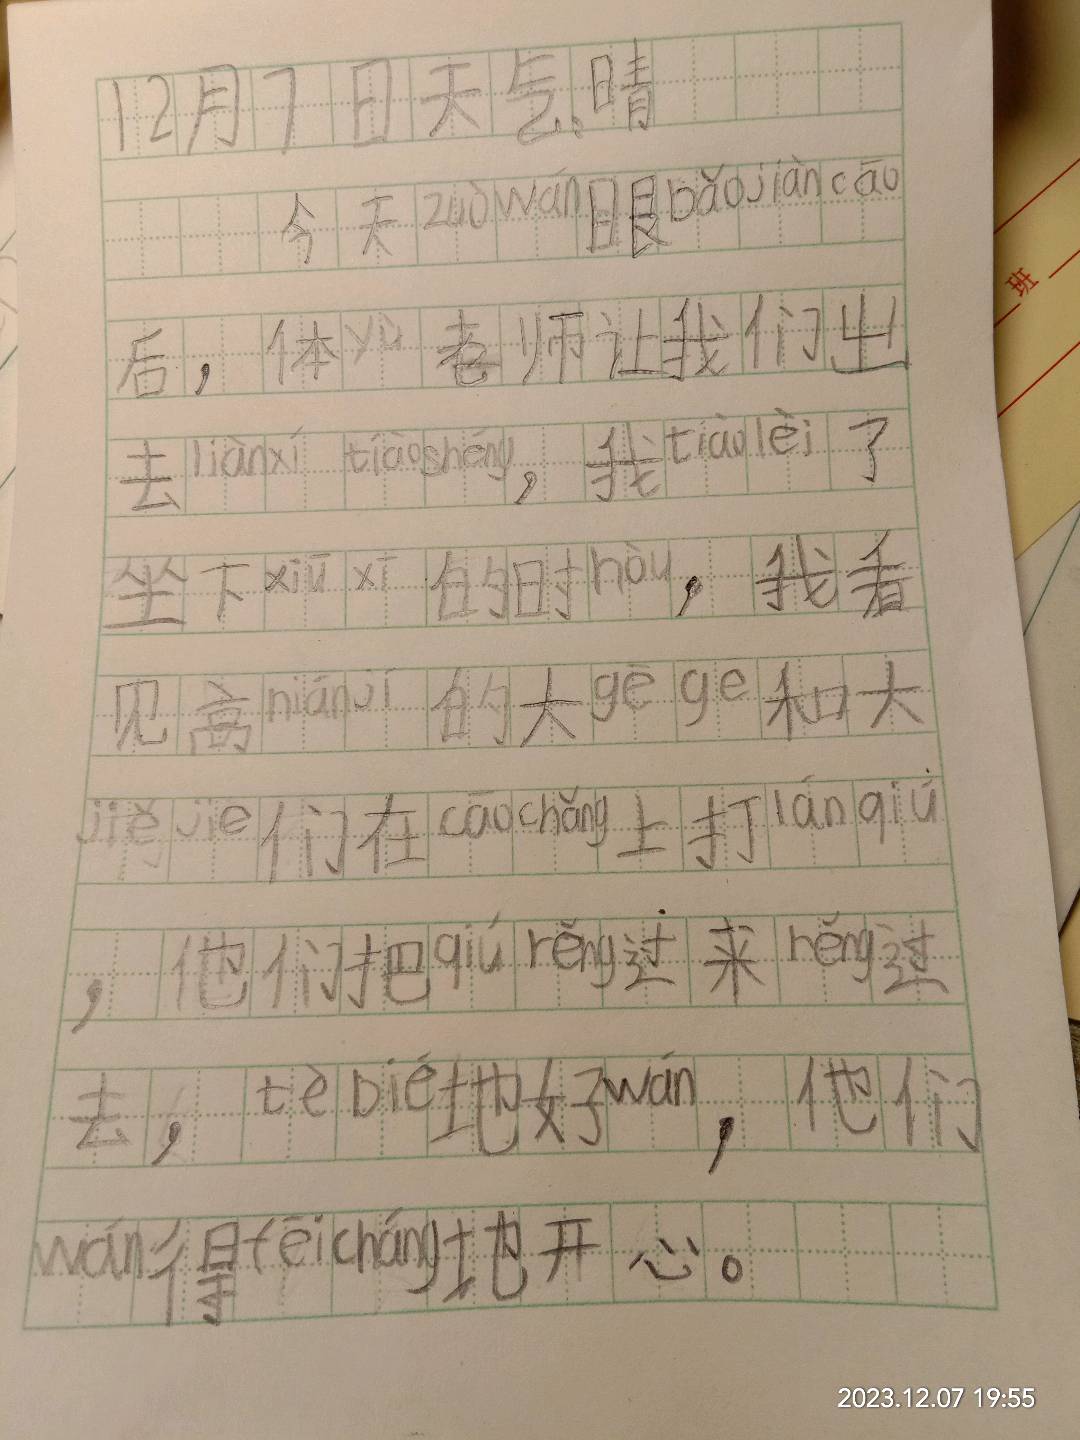 12月7日天气晴
今天zuòwán眼bǎojiàncāo
后，体yù老师让我们出
去liànxí tiàoshéng，我tiàolèi了
坐下xiūxi的时hòu，我看
见高niánjí的大gēge和大
jiějie们在cāochǎng上打lánqiú
，他们把qiú rěng过来rěng过
去，tèbié地好wán，他们
wán得fēicháng地开心。
班
2023.12.07 19:55